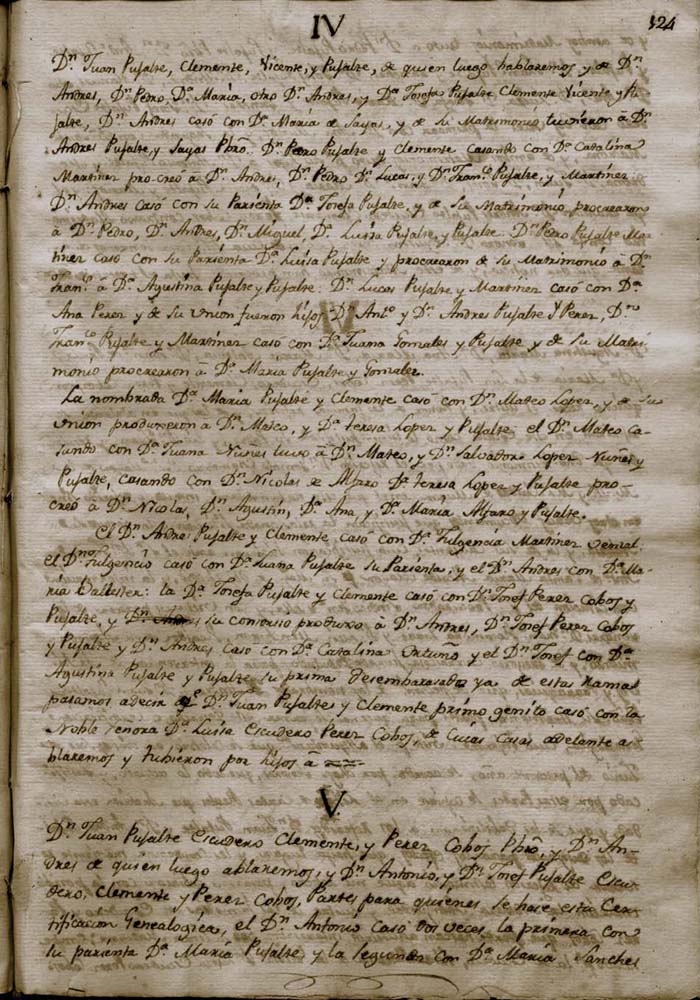 IV
124
Dn. Juan Pujalte, Clemente, Vicente, y Pujalte, de quien luego hablaremos y de Dn.
Andres, Dn. Pedro, Da. Maria, otro Dn. Andres, y Da. Josefa Pujalte Clemente Vicente y Pu-
jalte, Dn. Andres casó con Da. Maria de Sayas, y de su Matrimonio tuvieron à Dn.
Andres Pujalte, y Sayas Pbro. Dn. Pedro Pujalte y Clemente casando con Da. Catalina
Martinez procreó à Dn. Andres, Dn. Pedro Dn. Lucas, y Dn. Franco. Pujalte, y Martinez
Dn. Andres casó con su Parienta Da. Josefa Pujalte, y de su Matrimonio procrearon
à Dn. Pedro, Dn. Andres, Dn. Miguel, Da. Luisa Pujalte, y Pujalte. Dn. Pedro Pujalte Mar-
tinez casó con su Parienta Da. Luisa Pujalte y procrearon de su Matrimonio à Dn.
Franco. à Da. Agustina Pujalte y Pujalte: Dn. Lucas Pujalte y Martinez casó con Da.
Ana Perez y de su union fueron hijos Dn. Anto. y Dn. Andres Pujalte y Perez, Dn.
Franco. Pujalte y Martinez casó con Da. Juana Gomales y Pujalte y de su Matri-
monio procrearon à Da. Maria Pujalte y Gonzalez.
La nombrada Da. Maria Pujalte y Clemente casó con Dn. Mateo Lopez, y de su
Union produxeron a Dn. Mateo, y Da. teresa Lopez y Pujalte el Dn. Mateo ca-
sando con Da. Juana Nuñes tuvo à Dn. Mateo, y Dn. Salvador Lopez Nuñes y
Pujalte, casando con Dn. Nicolas de Alfaro Da. teresa Lopez y Pujalte pro-
creó à Dn. Nicolas, Dn. Agustin, Da. Ana, y Da. Maria Alfaro y Pujalte.
El Dn. Andres Pujalte y Clemente, casó con Da. Fulgencia Martinez
el Dn. Fulgencio casó con Da. Juana Pujalte su Parienta, y el Dn. Andres con Da. Ma-
ria Ballester: la Da. Josefa Pujalte y Clemente casó con Dn. Josef Perez Cobos y
Pujalte, y su consorsio produxo à Dn. Andres, Dn. Josef Perez Cobos
y Pujalte y Dn. Andres casó con Da. Catalina Ortuño y el Dn. Josef con Da.
Agustina Pujalte y Pujalte su prima desembarasados ya de estas ramas
pasamos adecir qe. Dn. Juan Pujaltes y Clemente primo genito casó con la
Noble señora Da. Luisa Escudero Perez Cobos, de Cuias Casas adelante a
blaremos y tubieron por hijos à
V.
Dn. Juan Pujalte Escudero Clemente, y Perez Cobos Pbro. y Dn. An-
dres de quien luego ablaremos, y Dn. Antonio, y Dn. Josef Pujalte Escu-
dero, Clemente y Perez Cobos, Partes para quiénes se hase esta Cer-
tificación Genealogica, el Dn. Antonio Casó dos veces la primera con
su parienta Da. Maria Pujalte, y la segunda con Da. Maria Sanches